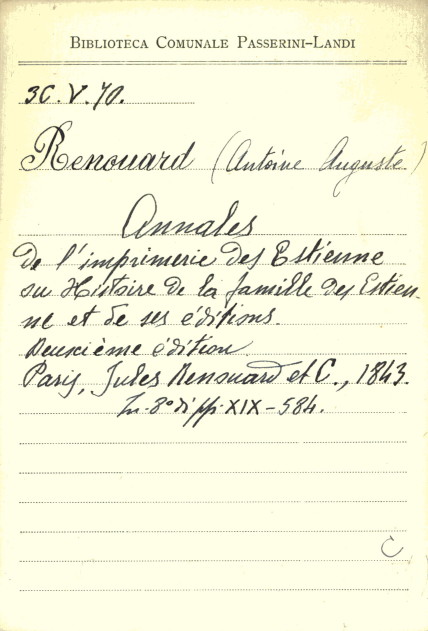 BIBLIOTECA COMUNALE PASSERINI-LANDI
3C.V.70.
Renouard (Antoine Auguste)
Annales
de l'imprimerie des Estienne
ou Histoire de la famille des Estien-
ne et de ses éditions.
Deuxième édition
Paris, Jules Renouard et C., 1843.
In-8° di pp. XIX-584.
C